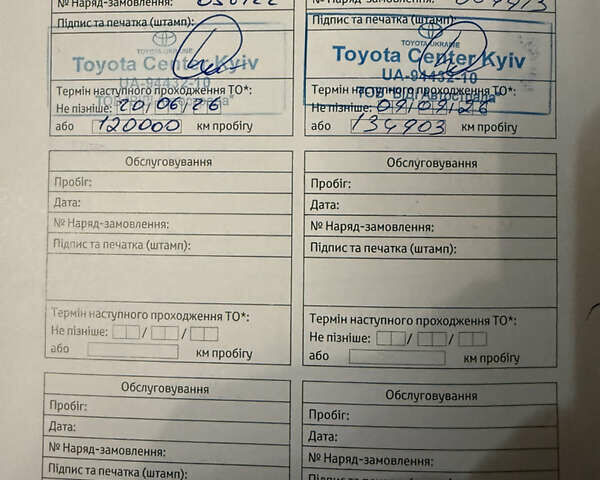 № Наряд-замовлення:
Підпис та печатка (штамп):
TOYOTA UKRAINE
Toyota Center Kyiv
UA-94432-10
Термін наступного проходження ТО*:
Не пізніше: 20/06/26
або 120000 км пробігу
№ Наряд-замовлення:
Підпис та печатка (штамп):
TOYOTA UKRAINE
Toyota Center Kyiv
UA-94432-10
ТОВ "ВІДІ Автострада"
Термін наступного проходження ТО*:
Не пізніше: 09/09/26
або 134903 км пробігу
Обслуговування
Пробіг:
Дата:
№ Наряд-замовлення:
Підпис та печатка (штамп):
Термін наступного проходження ТО*:
Не пізніше: / /
або км пробігу
Обслуговування
Пробіг:
Дата:
№ Наряд-замовлення:
Підпис та печатка (штамп):
Термін наступного проходження ТО*:
Не пізніше: / /
або км пробігу
Обслуговування
Пробіг:
Дата:
№ Наряд-замовлення:
Підпис та печатка (штамп):
Обслуговування
Пробіг:
Дата:
№ Наряд-замовлення:
Підпис та печатка (штамп):